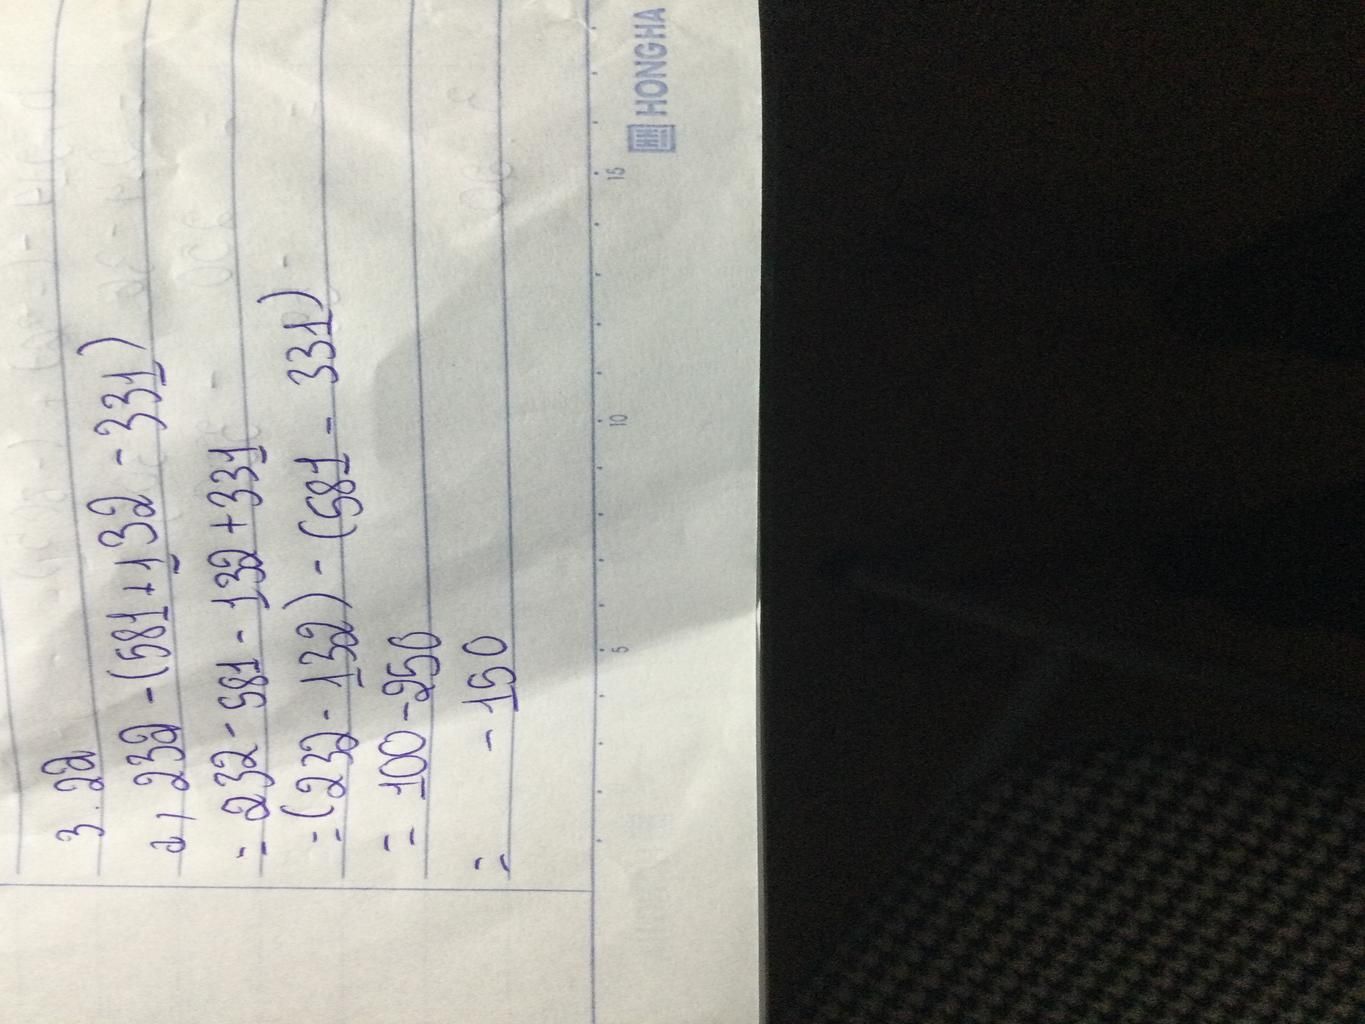 3.22
a, 232 - (581 + 132 - 331)
= 232 - 581 - 132 + 331
= (232 - 132) - (581 - 331)
= 100 - 250
= - 150
5 10 15
HONG HA